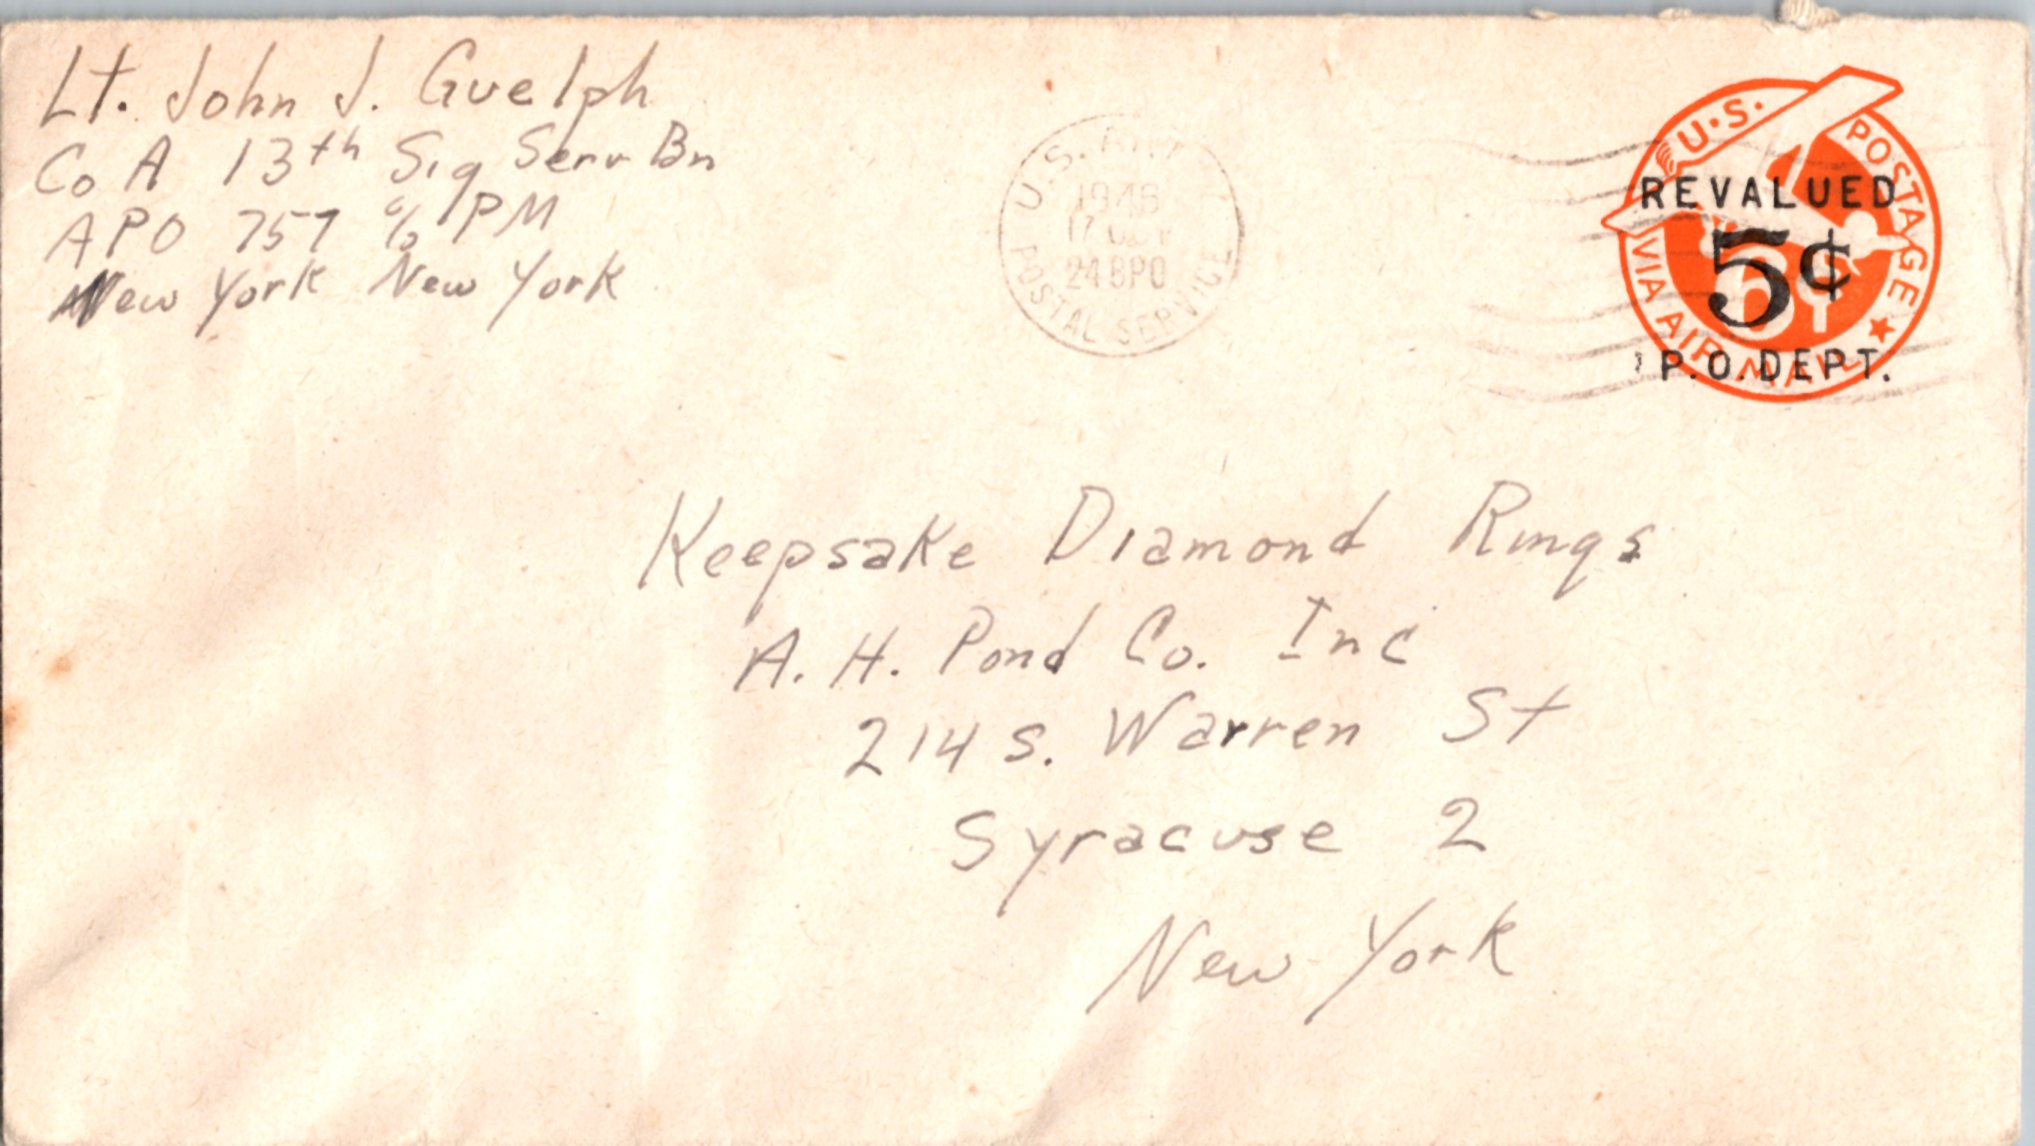 Lt. John J. Guelph
Co A 13th Sig Serv Bn
APO 757 c/o PM
New York New York
U.S. ARMY
1946
17 OCT
24 BPO
POSTAL SERVICE
U.S. POSTAGE
REVALUED
5¢
6¢
P.O. DEPT.
VIA AIR MAIL
Keepsake Diamond Rings
A. H. Pond Co. Inc
214 S. Warren St
Syracuse 2
New York